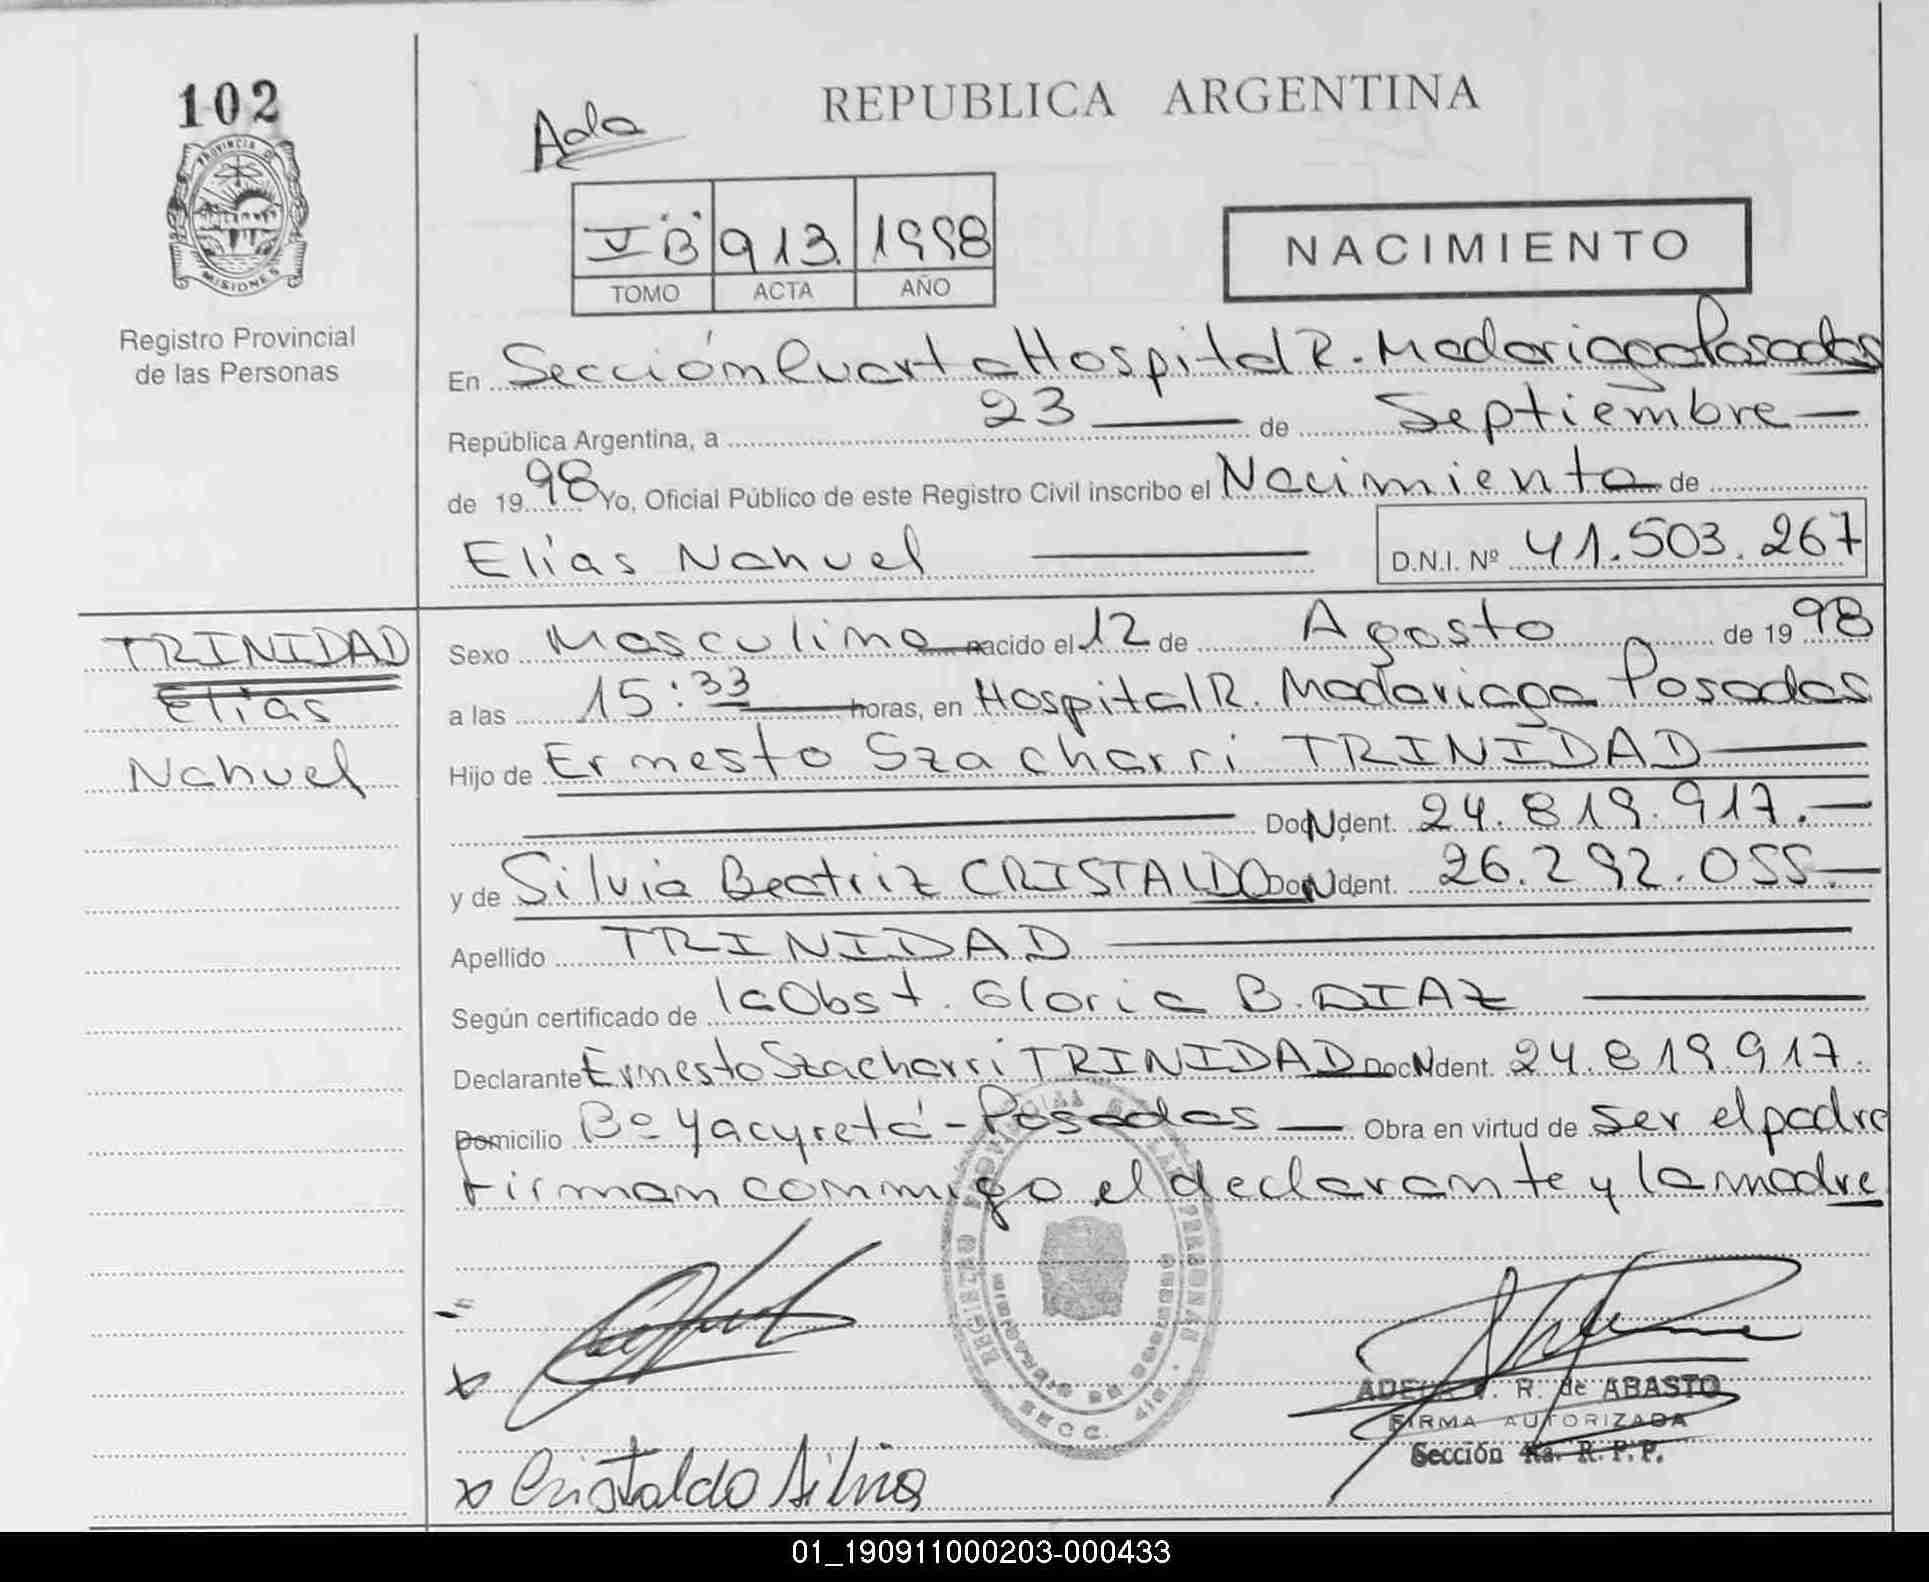 102
PROVINCIA DE
MISIONES
Registro Provincial
de las Personas
Ada
REPUBLICA ARGENTINA
V B 913. 1998
TOMO ACTA AÑO
NACIMIENTO
En Sección Cuarta Hospital R. Madariaga Posadas
República Argentina, a 23 de Septiembre
de 1998 Yo, Oficial Público de este Registro Civil inscribo el Nacimiento de
Elías Nahuel D.N.I. Nº 41.503.267
TRINIDAD
Elías
Nahuel
Sexo Masculino nacido el 12 de Agosto de 1998
a las 15:33 horas, en Hospital R. Madariaga Posadas
Hijo de Ernesto Szacharri TRINIDAD
Doc. Ident. 24.819.917.
y de Silvia Beatriz CRISTALDO Doc. Ident. 26.292.055.
Apellido TRINIDAD
Según certificado de la Obst. Gloria B. DIAZ
Declarante Ernesto Szacharri TRINIDAD Doc. Ident. 24.819.917.
Domicilio Bº Yacyretá - Posadas Obra en virtud de ser el padre
Firman conmigo el declarante y la madre
x
x Cristaldo Silvia
R. de ABASTO
FIRMA AUTORIZADA
Sección 4a. R.P.P.
01_190911000203-000433